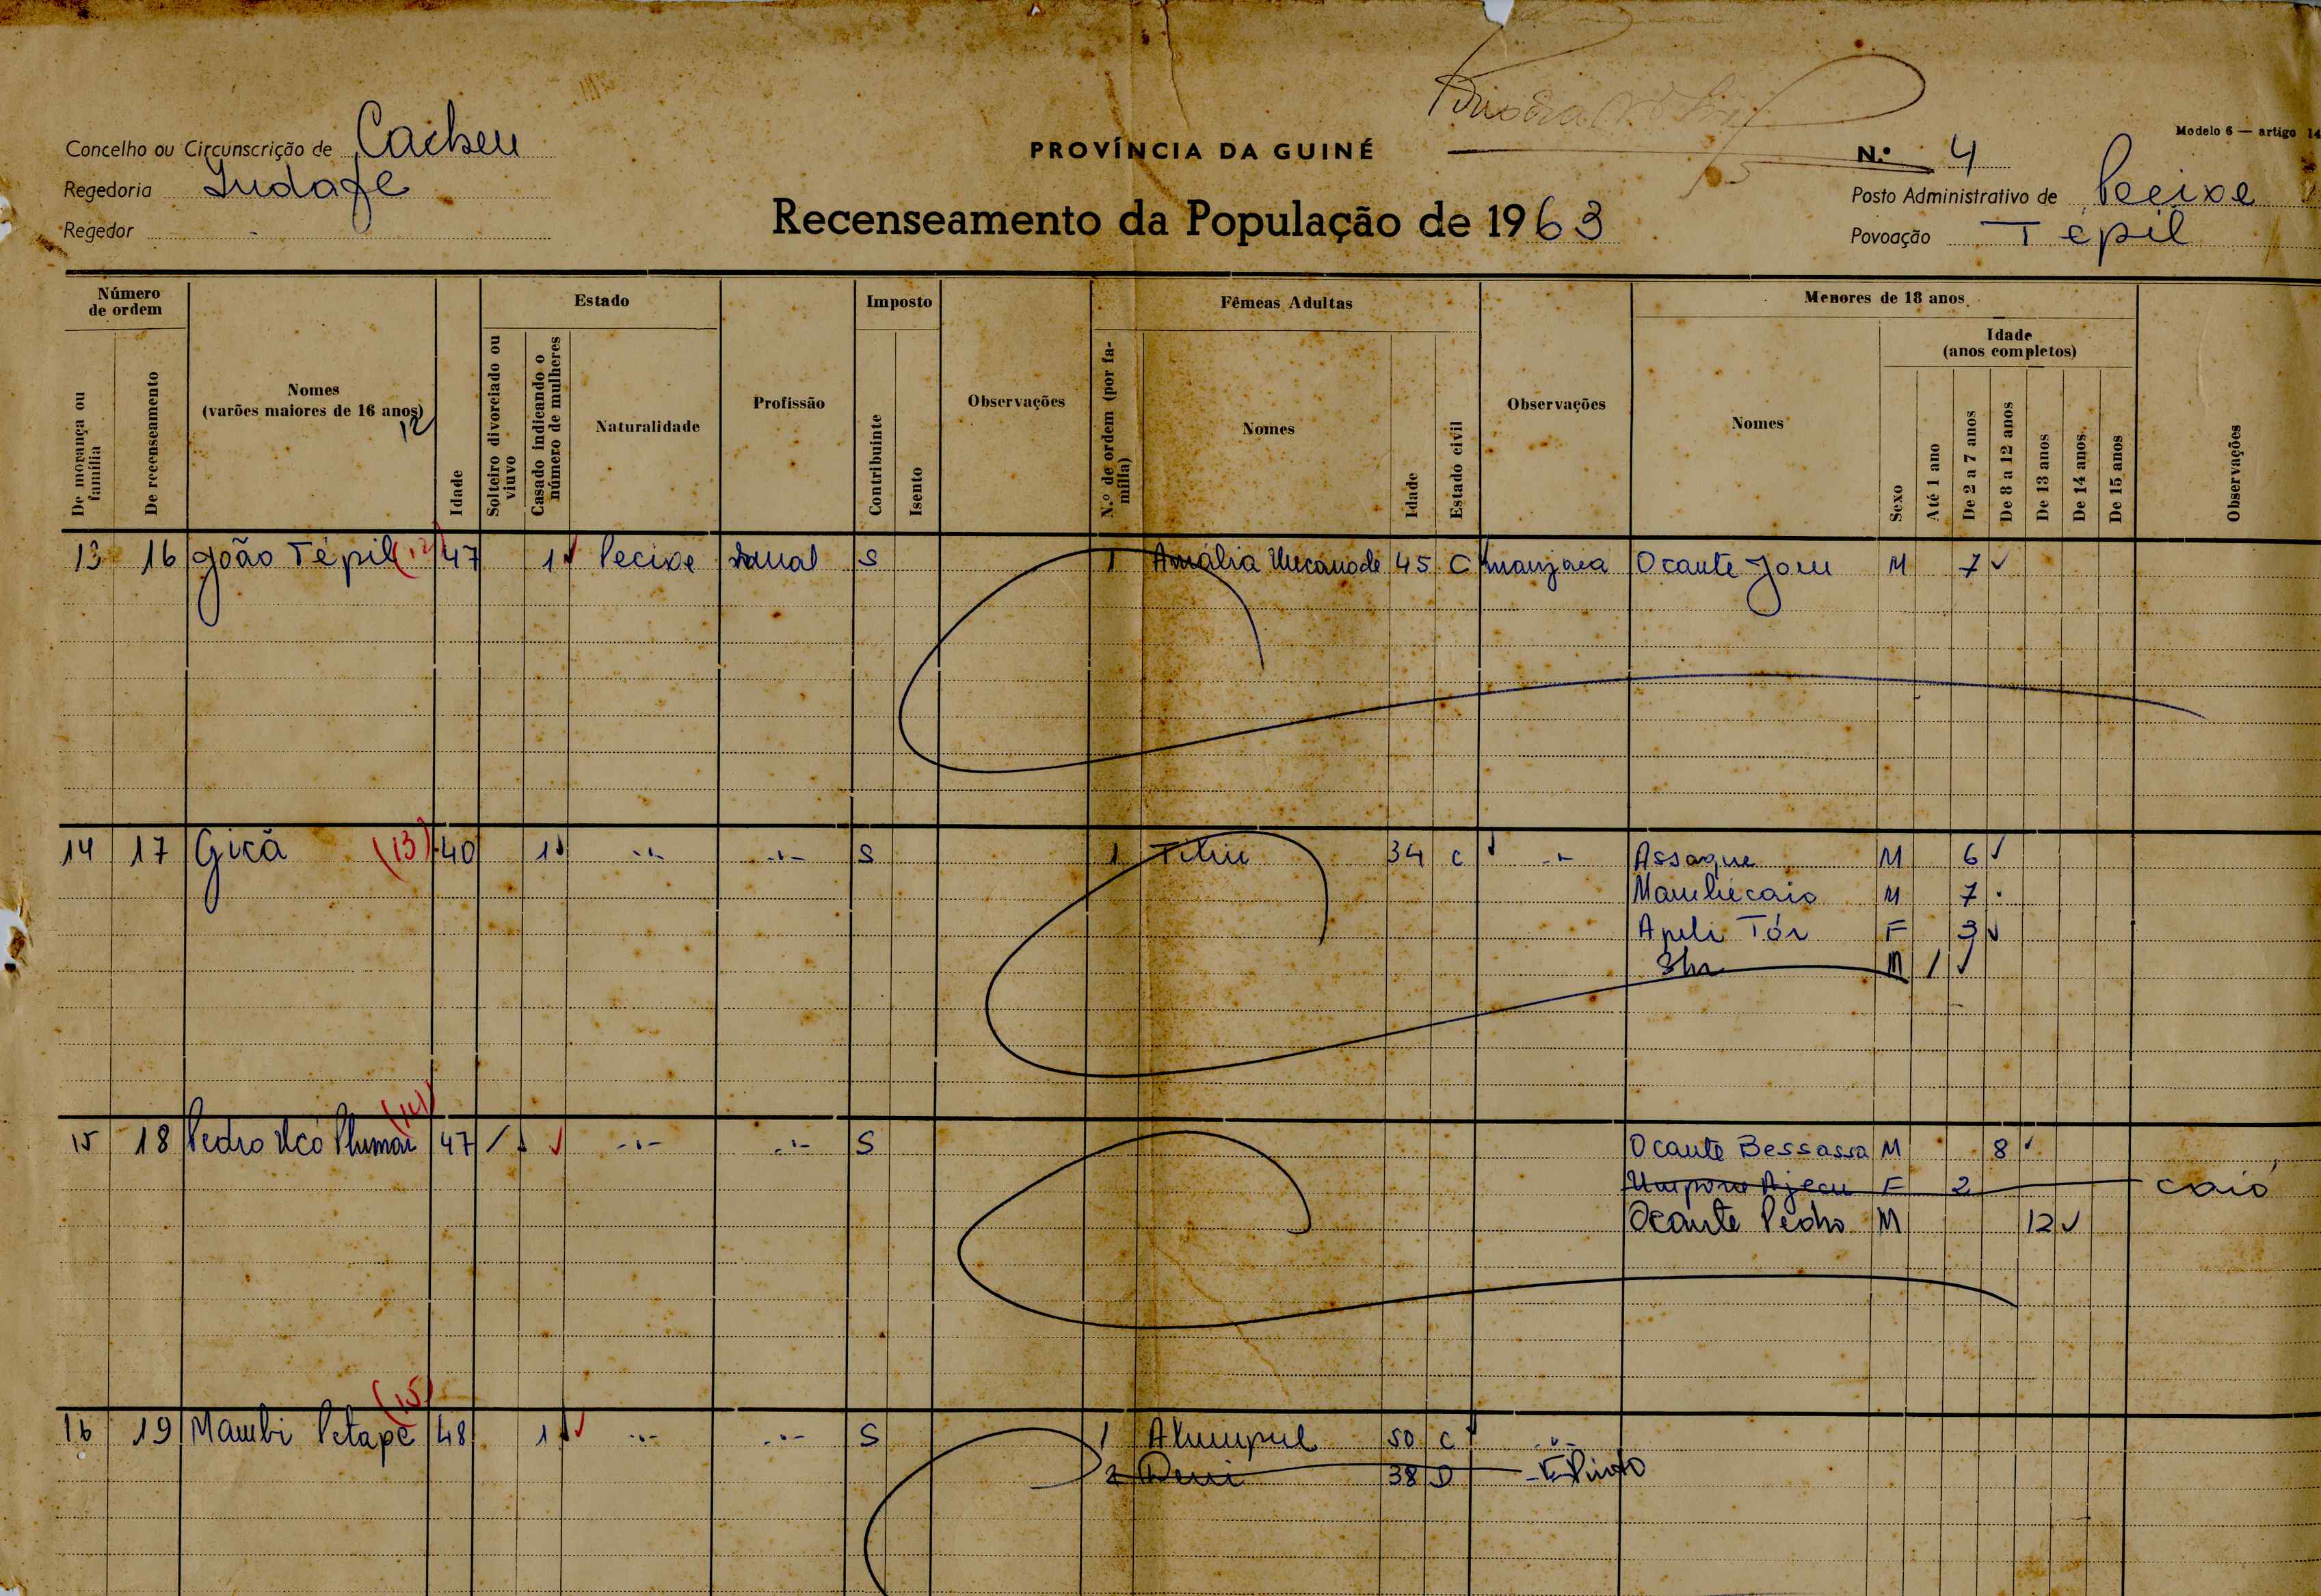 Modelo 6 — artigo 14
Concelho ou Circunscrição de Cacheu
PROVÍNCIA DA GUINÉ
N.º 4
Regedoria Indafe
Posto Administrativo de Pecixe
Recenseamento da População de 1963
Regedor -
Povoação Tépil
Número de ordem
Estado
Imposto
Fêmeas Adultas
Menores de 18 anos
De morança ou família
De recenseamento
Nomes
(varões maiores de 16 anos)
12
Idade
Solteiro divorciado ou viuvo
Casado indicando o número de mulheres
Naturalidade
Profissão
Contribuinte
Isento
Observações
N.º de ordem (por família)
Nomes
Idade
Estado civil
Observações
Nomes
Sexo
Idade
(anos completos)
Até 1 ano
De 2 a 7 anos
De 8 a 12 anos
De 13 anos
De 14 anos
De 15 anos
Observações
13 16 João Tépil (12) 47 1 Pecixe S 1 Amália 45 C manjaca Ocante Jom M 7
14 17 Gicã (13) 40 1 -.- -.- S 1 34 c -.- Assaque M 6
Mambécaio M 7
Apili Tór F 3
M 1
(14)
15 18 Pedro 47 -.- -.- S Ocante Bessassa M 8
F 2 caió
Ocante Pedro M 12
(15)
16 19 Mambi Petape 48 1 -.- -.- S 1 50 c -.-
2 38 D